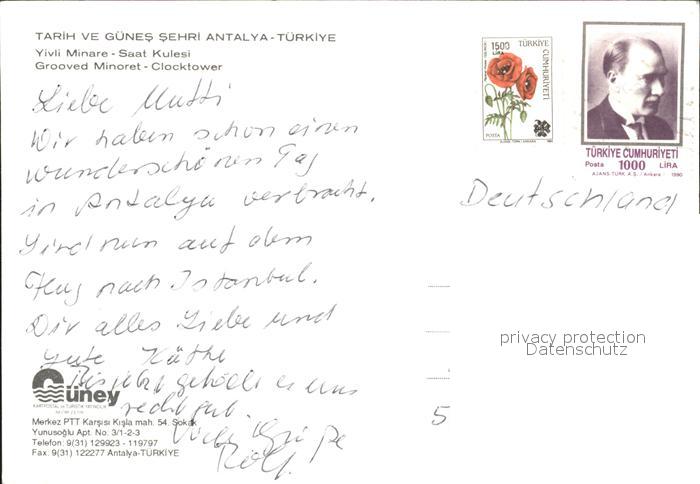 TARİH VE GÜNEŞ ŞEHRİ ANTALYA - TÜRKİYE
Yivli Minare - Saat Kulesi
Grooved Minoret - Clocktower
Liebe Mutti
Wir haben schon einen
wunderschönen Tag
in Antalya verbracht.
Sind nun auf dem
Flug nach Istanbul.
Dir alles Liebe und
Gute Käthe
Bis jetzt gefällt es uns
recht gut.
Viele Grüße
Rolf.
1500
LİRA
TÜRKİYE
CUMHURİYETİ
POSTA
AJANS-TÜRK / ANKARA
TÜRKİYE CUMHURİYETİ
Posta 1000 LİRA
AJANS-TÜRK A.Ş. / Ankara 1990
Deutschland
privacy protection
Datenschutz
5
Güney
KARTPOSTAL ve TURİSTİK YAYINCILIK
Merkez PTT Karşısı Kışla mah. 54. Sokak
Yunusoğlu Apt. No: 3/1-2-3
Telefon: 9(31) 129923 - 119797
Fax: 9(31) 122277 Antalya-TÜRKİYE